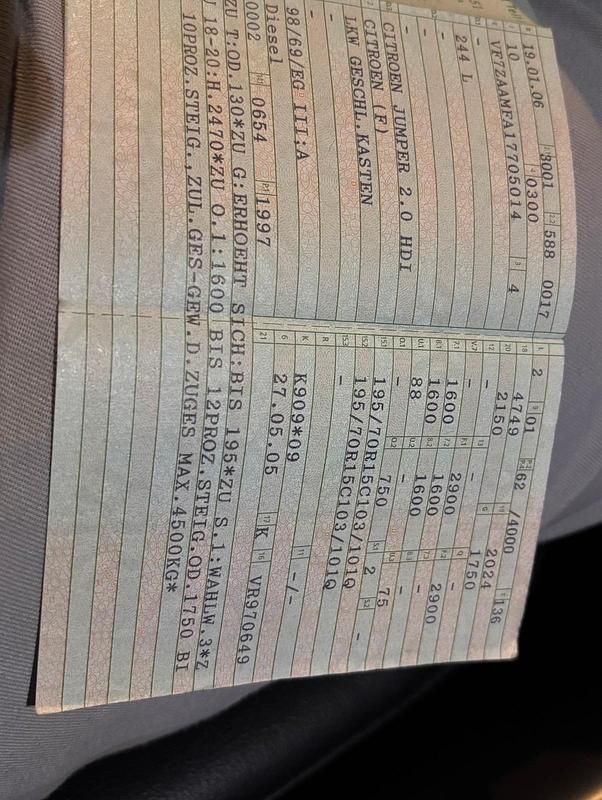 19.01.06 3001 588 0017
10 0300
VF7ZAAMFA17705014 4
-
244 L
-
-
CITROEN JUMPER 2.0 HDI
CITROEN (F)
LKW GESCHL.KASTEN
-
-
98/69/EG III;A
Diesel
0002 0654 1997
L 2 9 01 62 /4000 136
18 4749 2024
20 2150 1750
12 - 13 - Q -
V.7 1600 F.1 2900 F.2 2900
7.1 1600 7.2 1600 7.3 -
8.1 88 8.2 1600 8.3 -
U.1 - U.2 - U.3 75
O.1 - O.2 750 S.1 2 S.2 -
15.1 195/70R15C103/101Q
15.2 195/70R15C103/101Q
15.3 -
R
K K909*09 11 -/-
6 27.05.05 17 K 16 VR970649
21 ZU T:OD.130*ZU G:ERHOEHT SICH:BIS 195*ZU S.1:WAHLW.3*Z
U 18-20:H.2470*ZU O.1:1600 BIS 12PROZ.STEIG.OD.1750 BI
10PROZ.STEIG.,ZUL.GES-GEW.D.ZUGES MAX.4500KG*